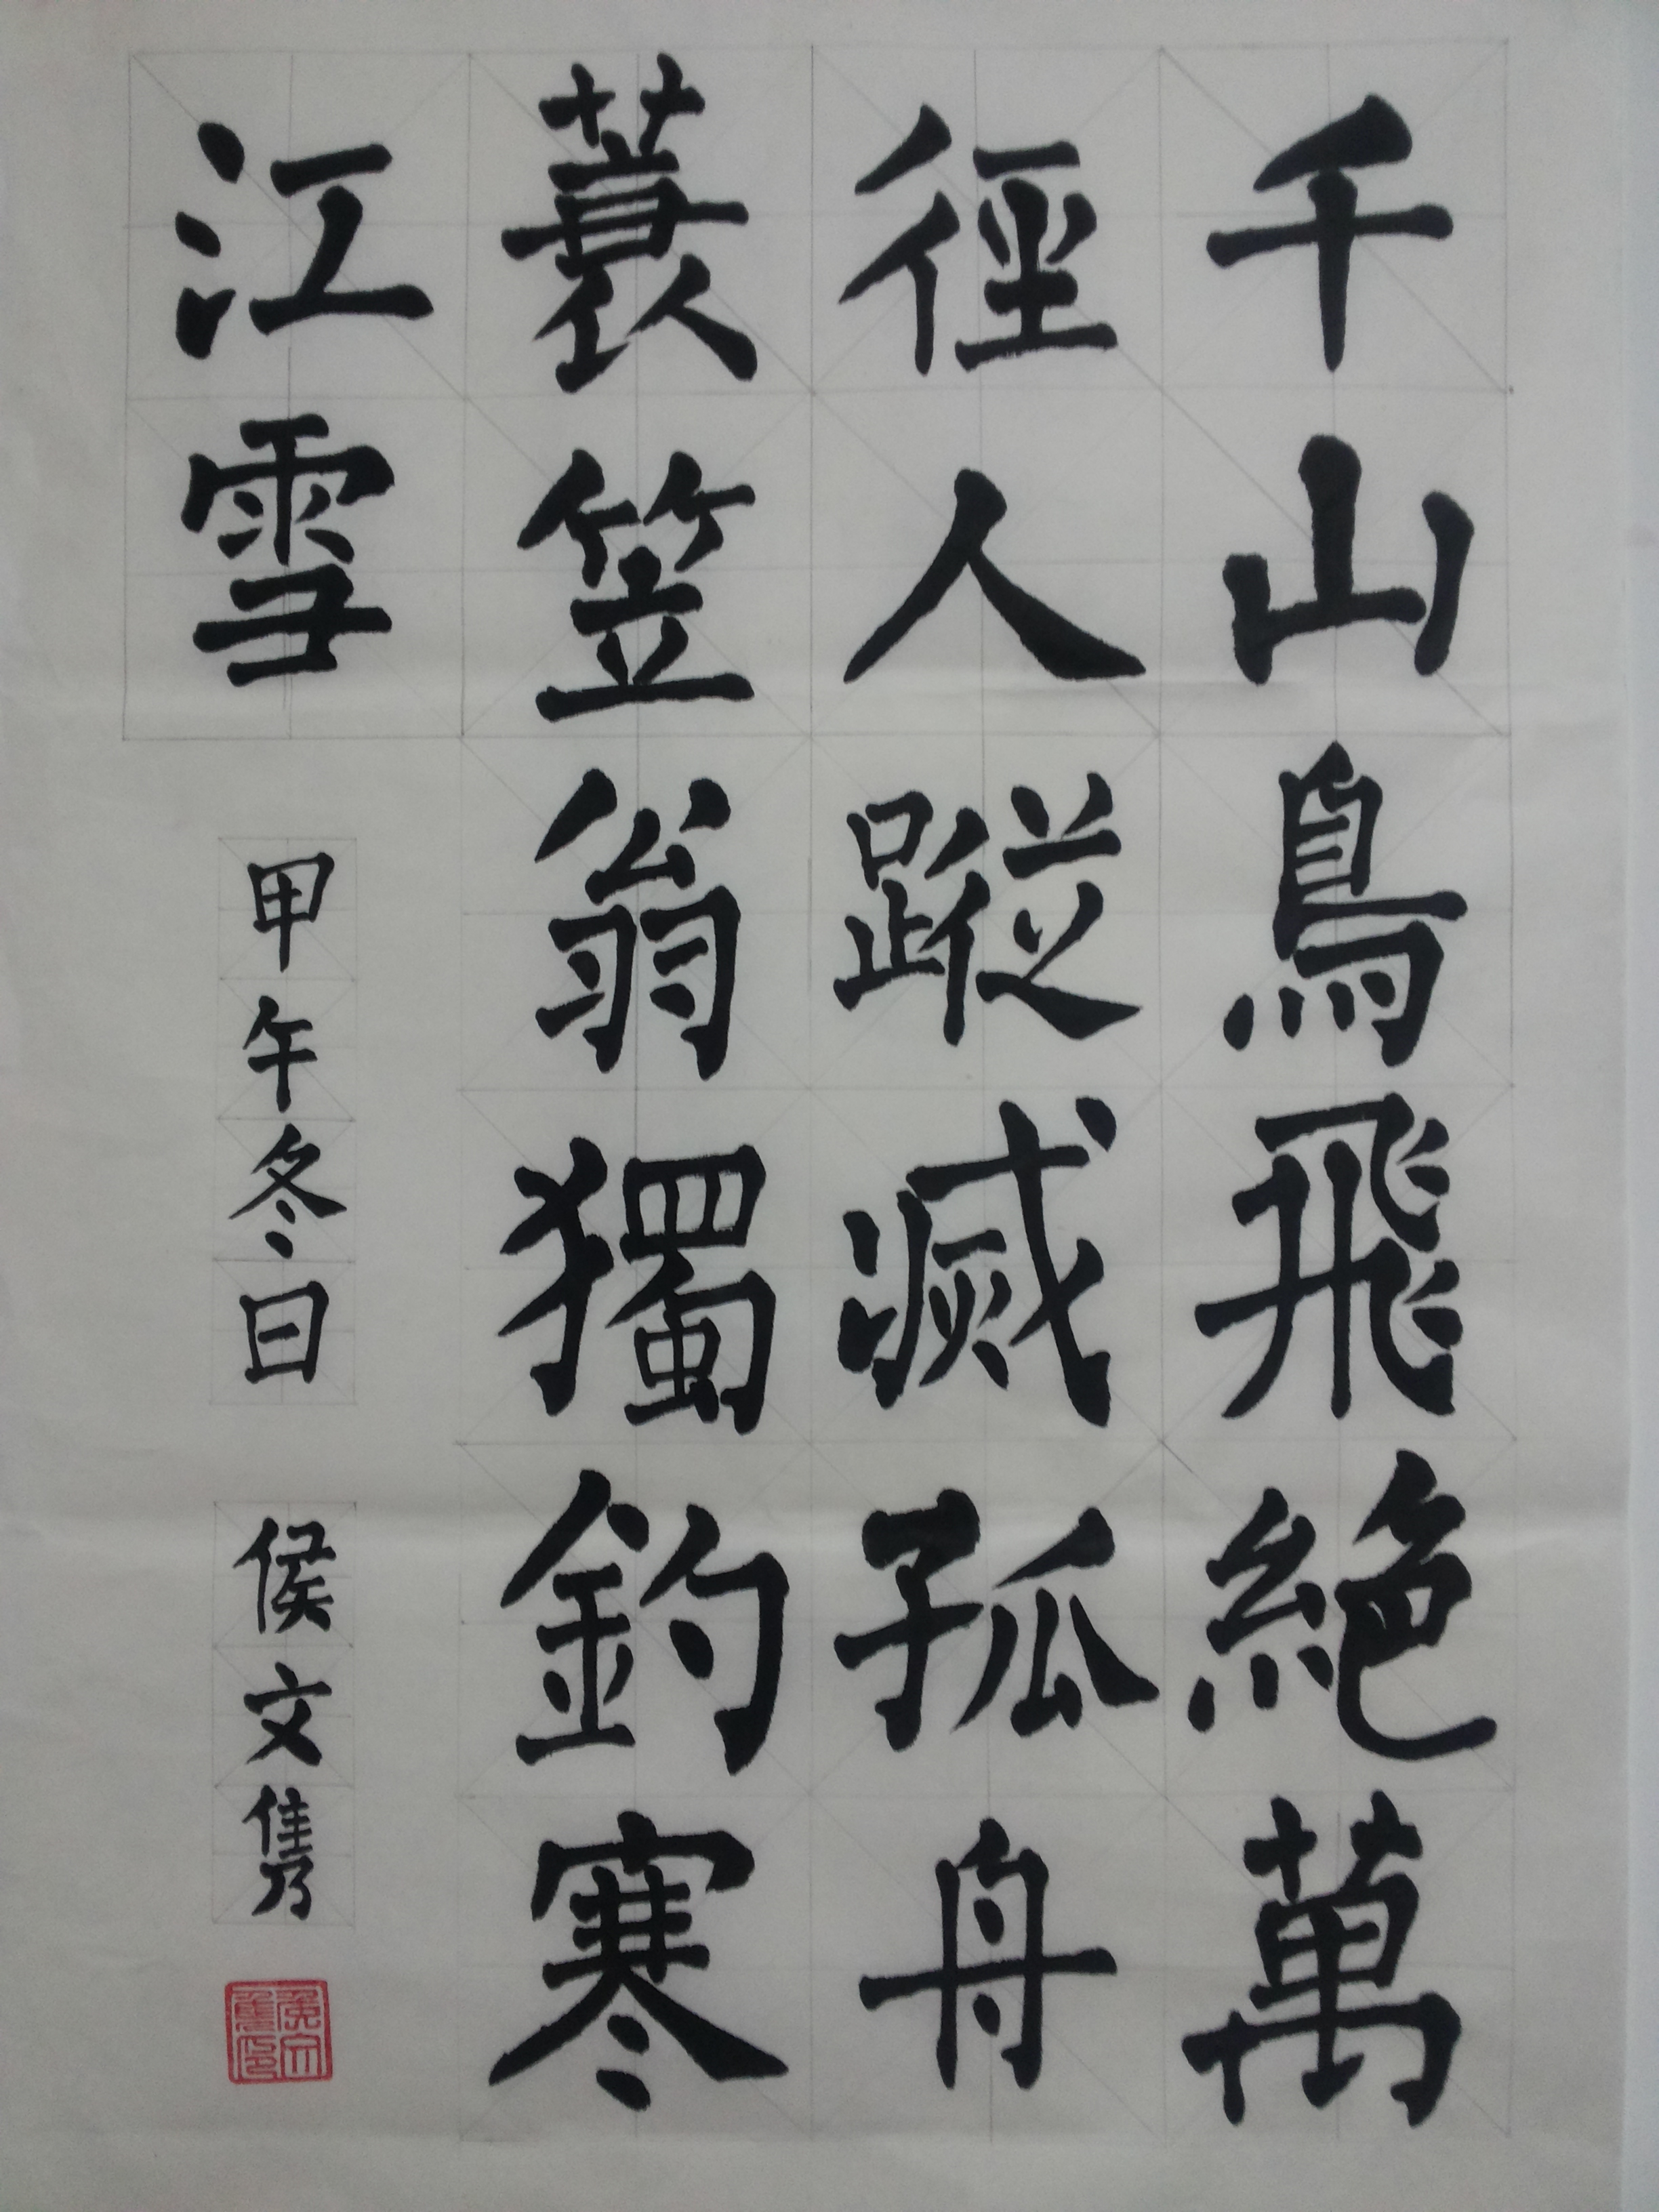 千山鳥飛絶萬
徑人蹤滅孤舟
蓑笠翁獨釣寒
江雪
甲午冬日
侯文雋